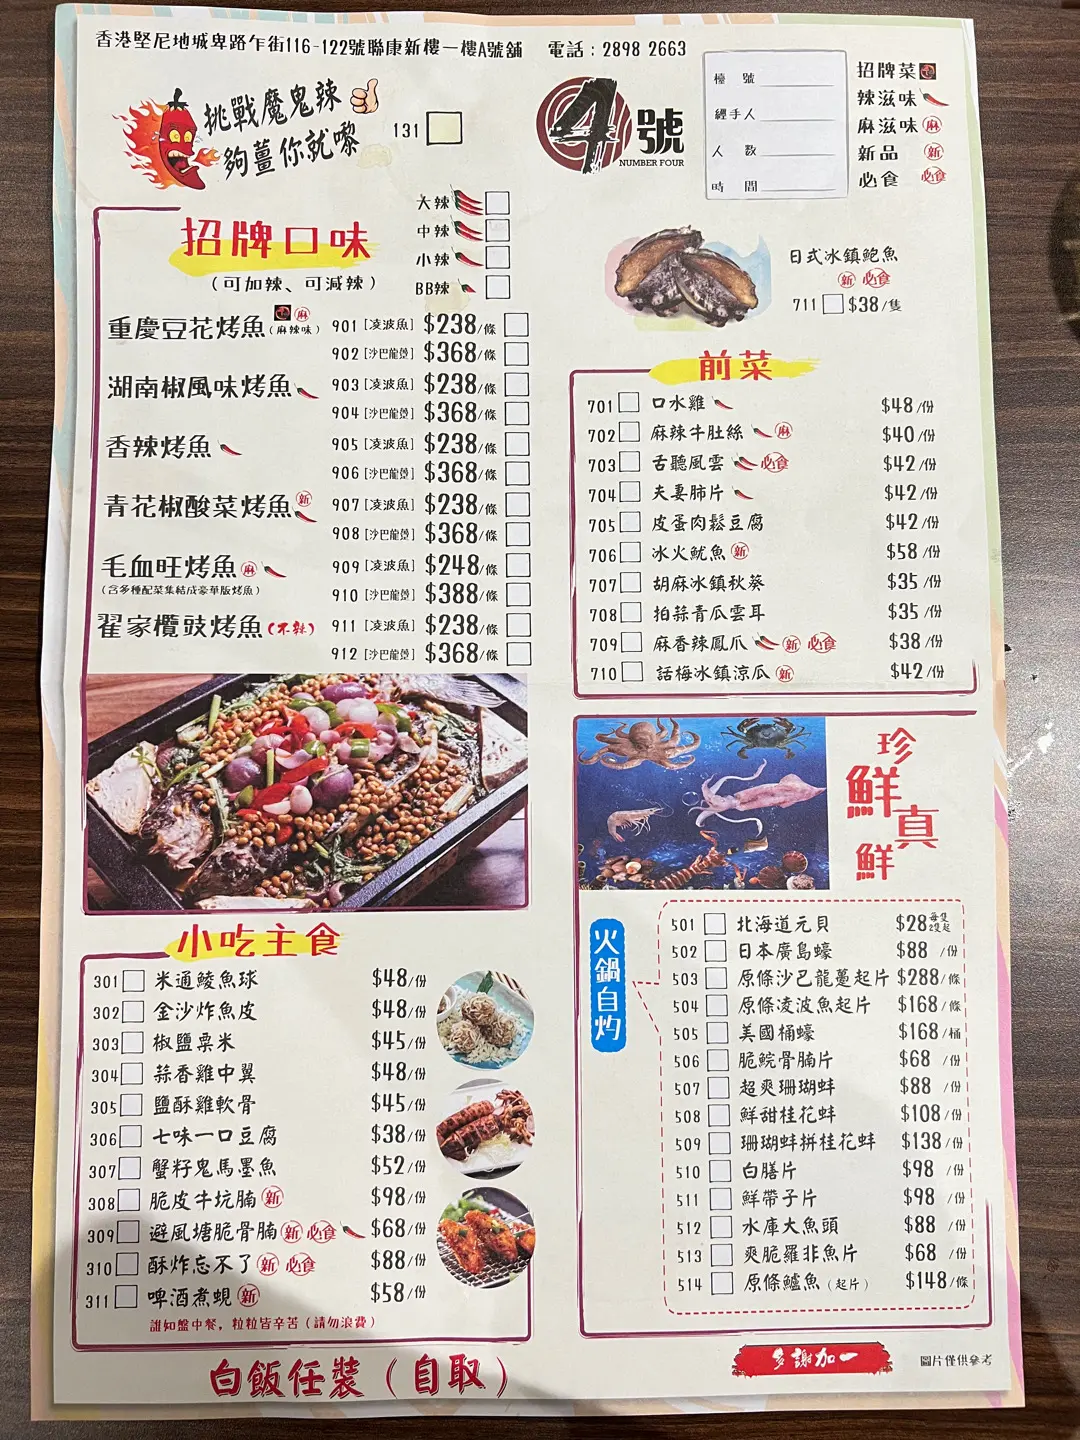 香港堅尼地城卑路乍街116-122號聯康新樓一樓A號舖 電話：2898 2663
挑戰魔鬼辣
夠薑你就嚟
131
4號
NUMBER FOUR
檯號
經手人
人數
時間
招牌菜
辣滋味
麻滋味 麻
新品 新
必食 必食
大辣
中辣
小辣
BB辣
招牌口味
（可加辣、可減辣）
重慶豆花烤魚 麻 （麻辣味） 901 [凌波魚] $238/條
902 [沙巴龍躉] $368/條
湖南椒風味烤魚 903 [凌波魚] $238/條
904 [沙巴龍躉] $368/條
香辣烤魚 905 [凌波魚] $238/條
906 [沙巴龍躉] $368/條
青花椒酸菜烤魚 新 907 [凌波魚] $238/條
908 [沙巴龍躉] $368/條
毛血旺烤魚 麻 909 [凌波魚] $248/條
（含多種配菜集結成豪華版烤魚） 910 [沙巴龍躉] $388/條
翟家欖豉烤魚（不辣） 911 [凌波魚] $238/條
912 [沙巴龍躉] $368/條
小吃主食
301 米通鯪魚球 $48/份
302 金沙炸魚皮 $48/份
303 椒鹽粟米 $45/份
304 蒜香雞中翼 $48/份
305 鹽酥雞軟骨 $45/份
306 七味一口豆腐 $38/份
307 蟹籽鬼馬墨魚 $52/份
308 脆皮牛坑腩 新 $98/份
309 避風塘脆骨腩 新 必食 $68/份
310 酥炸忘不了 新 必食 $88/份
311 啤酒煮蜆 新 $58/份
誰知盤中餐，粒粒皆辛苦（請勿浪費）
白飯任裝（自取）
日式冰鎮鮑魚
新 必食
711 $38/隻
前菜
701 口水雞 $48/份
702 麻辣牛肚絲 麻 $40/份
703 舌聽風雲 必食 $42/份
704 夫妻肺片 $42/份
705 皮蛋肉鬆豆腐 $42/份
706 冰火魷魚 新 $58/份
707 胡麻冰鎮秋葵 $35/份
708 拍蒜青瓜雲耳 $35/份
709 麻香辣鳳爪 新 必食 $38/份
710 話梅冰鎮涼瓜 新 $42/份
珍鮮真鮮
火鍋自灼
501 北海道元貝 $28 每隻 2隻起
502 日本廣島蠔 $88/份
503 原條沙巴龍躉起片 $288/條
504 原條凌波魚起片 $168/條
505 美國桶蠔 $168/桶
506 脆鯇骨腩片 $68/份
507 超爽珊瑚蚌 $88/份
508 鮮甜桂花蚌 $108/份
509 珊瑚蚌拼桂花蚌 $138/份
510 白膳片 $98/份
511 鮮帶子片 $98/份
512 水庫大魚頭 $88/份
513 爽脆羅非魚片 $68/份
514 原條鱸魚（起片） $148/條
多謝加一
圖片僅供參考